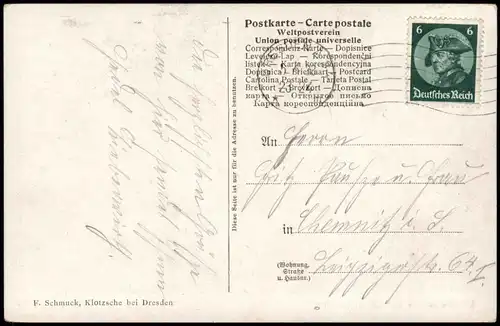 Postkarte - Carte postale
Weltpostverein
Union postale universelle
Correspondenz-Karte - Dopisnice
Levelező-Lap - Korespondenčni
listek - Karta korespondencyjna
Dopisnica - Briefkaart - Postcard
Cartolina Postale - Tarjeta Postal
Brefkort - Brevkort - Дописна
карта - Открытое письмо
Карта кореспонденцийна
6 6
Deutsches Reich
Die herzlichsten Grüße
von hier sendet
Diese Seite ist nur für die Adresse zu benutzen.
An Herrn
Fritz u. Frau
in Chemnitz i. S.
(Wohnung,
Straße
u. Hausnr.)
Leipzigerstr. 64 I.
F. Schmuck, Klotzsche bei Dresden